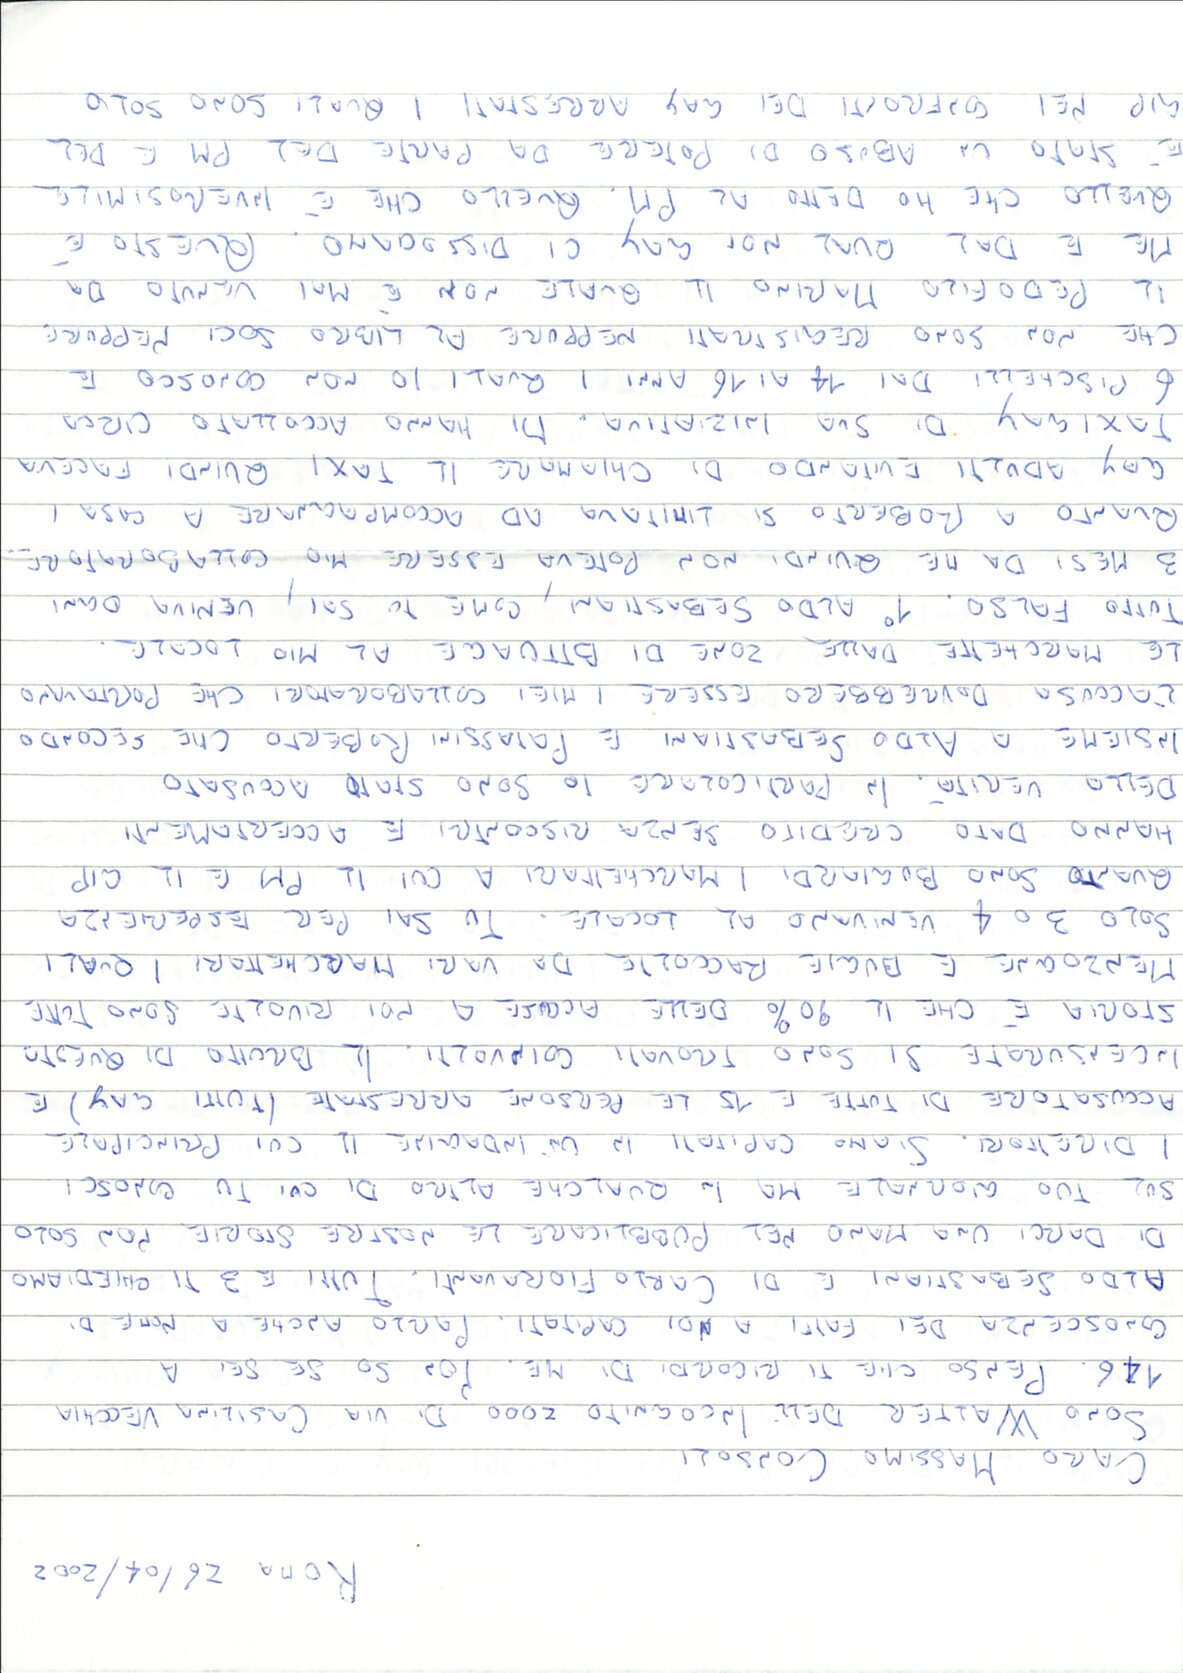 ROMA 26/04/2002
CARO MASSIMO CONSOLI
SONO WALTER DELL'INCOGNITO 2000 DI VIA CASILINA VECCHIA
146. PENSO CHE TI RICORDI DI ME. NON SO SE SEI A
CONOSCENZA DEI FATTI A NOI CAPITATI. PARLO ANCHE A NOME DI
ALDO SEBASTIANI E DI CARLO FIORAVANTI. TUTTI E 3 TI CHIEDIAMO
DI DARCI UNA MANO NEL PUBBLICARE LE NOSTRE STORIE NON SOLO
SUL TUO GIORNALE MA IN QUALCHE ALTRO DI CUI TU CONOSCI
I DIRETTORI. SIAMO CAPITATI IN UN'INDAGINE IL CUI PRINCIPALE
ACCUSATORE DI TUTTE E 15 LE PERSONE ARRESTATE (TUTTI GAY) E
INCENSURATE SI SONO TROVATI COINVOLTI. IL BRUTTO DI QUESTA
STORIA È CHE IL 90% DELLE ACCUSE A NOI RIVOLTE SONO TUTTE
MENZOGNE E BUGIE RACCOLTE DA VARI MARCHETTARI I QUALI
SOLO 3 O 4 VENIVANO AL LOCALE. TU SAI PER ESPERIENZA
QUANTO SONO BUGIARDI I MARCHETTARI A CUI IL PM E IL GIP
HANNO DATO CREDITO SENZA RISCONTRI E ACCERTAMENTI
DELLA VERITÀ. IN PARTICOLARE IO SONO STATO ACCUSATO
INSIEME A ALDO SEBASTIANI E PATASSINI ROBERTO CHE SECONDO
L'ACCUSA DOVREBBERO ESSERE I MIEI COLLABORATORI CHE PORTAVANO
LE MARCHETTE DALLE ZONE DI BITUAGE AL MIO LOCALE.
TUTTO FALSO. 1° ALDO SEBASTIANI, COME TU SAI, VENIVA OGNI
3 MESI DA ME QUINDI NON POTEVA ESSERE MIO COLLABORATORE.
QUANTO A ROBERTO SI LIMITAVA AD ACCOMPAGNARE A CASA I
GAY ADULTI EVITANDO DI CHIAMARE IL TAXI QUINDI FACEVA
TAXI GAY DI SUA INIZIATIVA. MI HANNO ACCOLLATO CIRCA
6 PISCHELLI DAI 14 AI 16 ANNI I QUALI IO NON CONOSCO E
CHE NON SONO REGISTRATI NEPPURE AL LIBRO SOCI NEPPURE
IL PEDOFILO MARINO IL QUALE NON È MAI VENUTO DA
ME E DAL QUAL NOI GAY CI DISSOCIAMO. QUESTO È
QUELLO CHE HO DETTO AL PM. QUELLO CHE È INVEROSIMILE
È STATO UN ABUSO DI POTERE DA PARTE DEL PM E DEL
GIP NEI CONFRONTI DEI GAY ARRESTATI I QUALI SONO SOLO